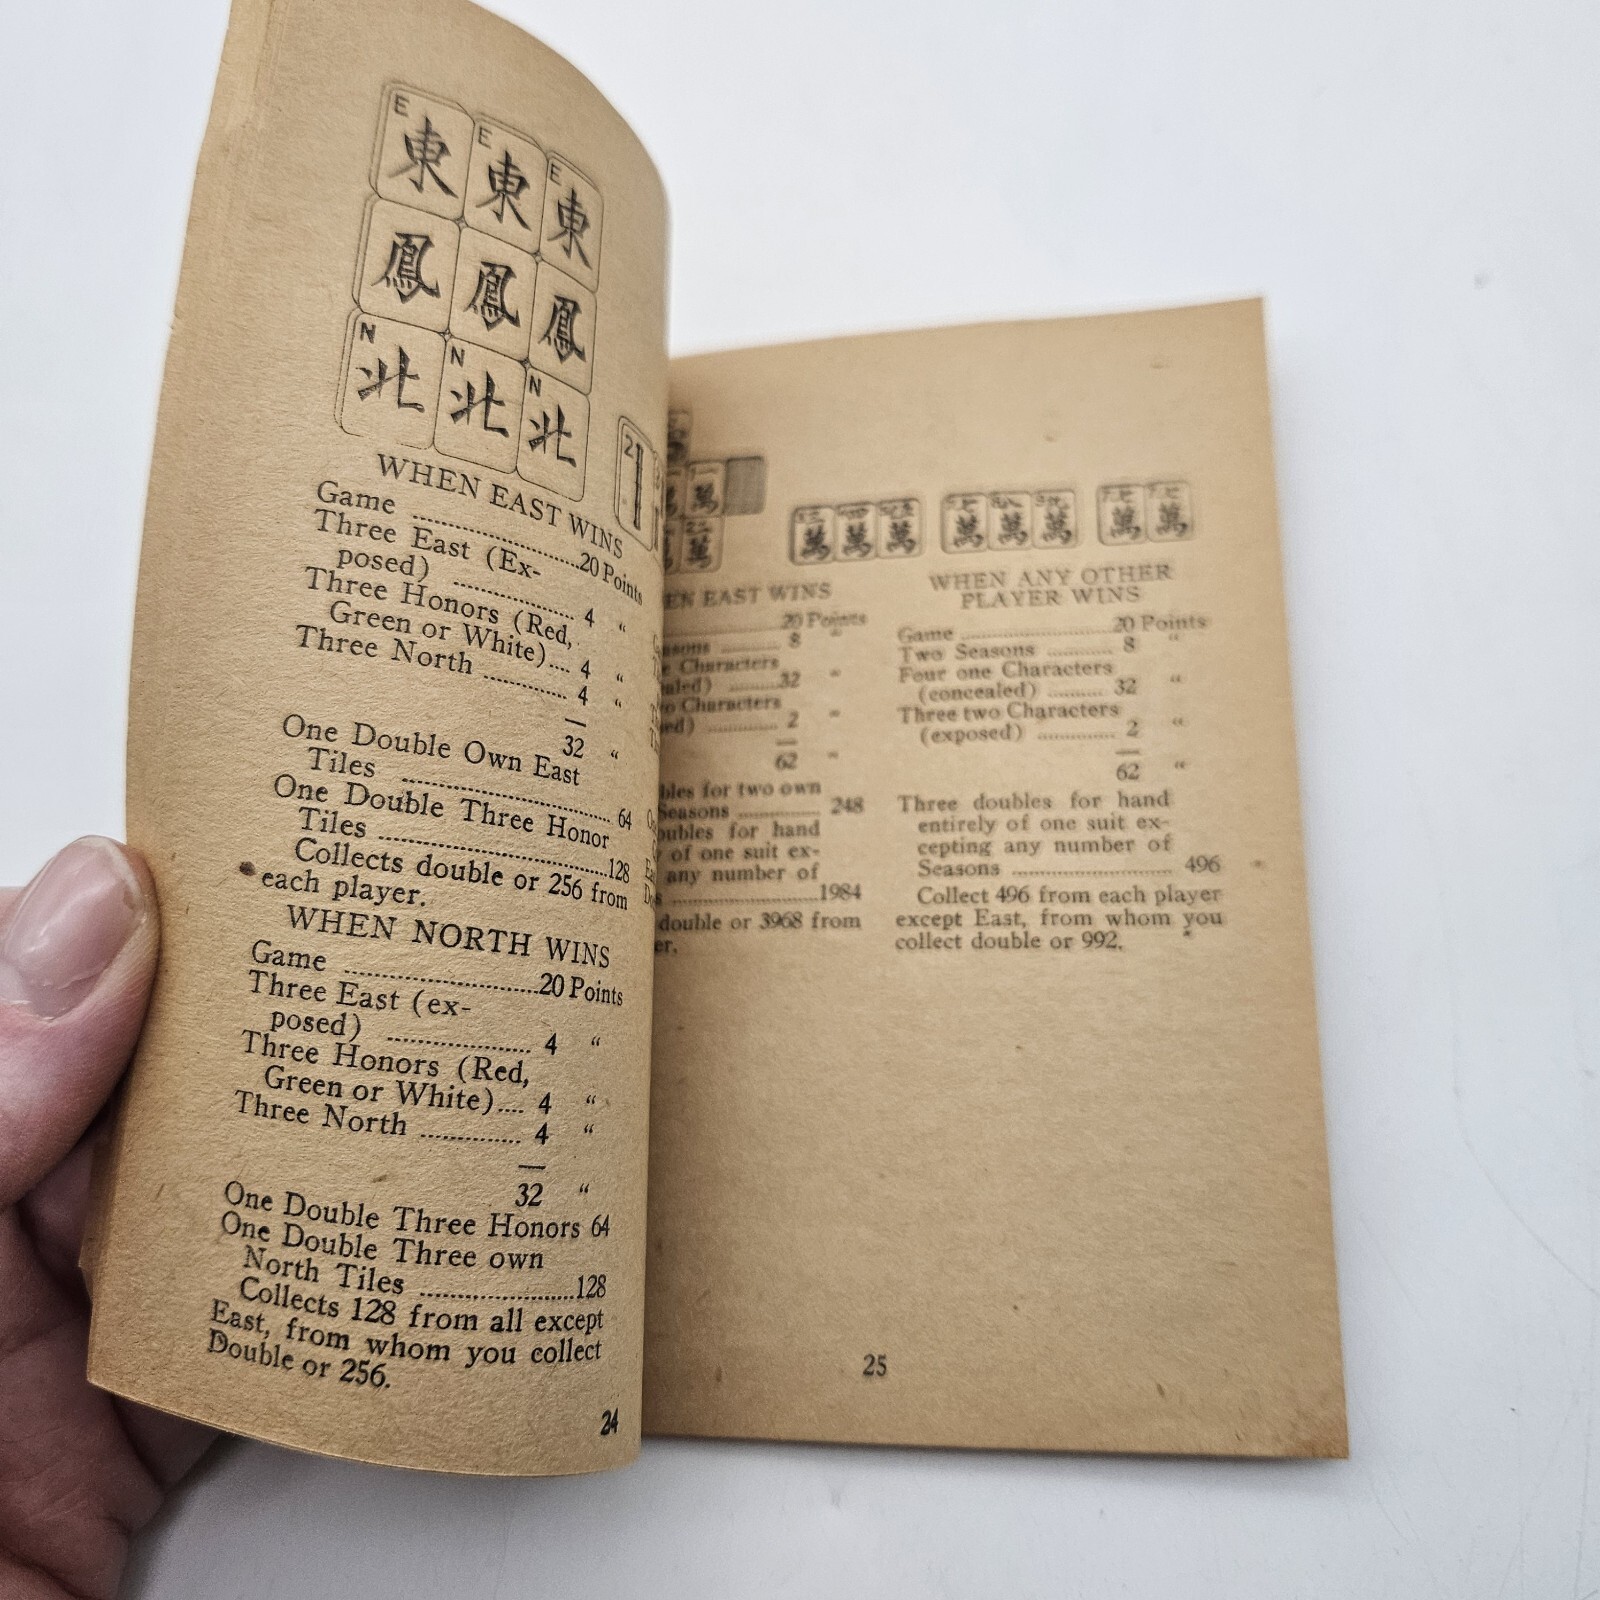 E E E
東 東 東
鳳 鳳 鳳
N N N
北 北 北
2
WHEN EAST WINS
Game ........................20 Points
Three East (Ex-
posed) ................ 4 "
Three Honors (Red,
Green or White).... 4 "
Three North ............ 4 "
32 "
One Double Own East
Tiles ............................ 64
One Double Three Honor
Tiles ...............................128
Collects double or 256 from
each player.
WHEN NORTH WINS
Game ..........................20 Points
Three East (ex-
posed) .................... 4 "
Three Honors (Red,
Green or White).... 4 "
Three North .............. 4 "
32 "
One Double Three Honors 64
One Double Three own
North Tiles ......................128
Collects 128 from all except
East, from whom you collect
Double or 256.
24
萬
萬
萬 萬 萬 萬 萬 萬 萬 萬
EN EAST WINS
20 Points
asons .......... 8 "
e Characters
aled) ..........32 "
o Characters
ed) ............ 2 "
62 "
bles for two own
Seasons .............. 248
oubles for hand
of one suit ex-
any number of
s ..........................1984
double or 3968 from
er.
WHEN ANY OTHER
PLAYER WINS
Game ..........................20 Points
Two Seasons ............ 8 "
Four one Characters
(concealed) .......... 32 "
Three two Characters
(exposed) .............. 2 "
62 "
Three doubles for hand
entirely of one suit ex-
cepting any number of
Seasons ............................ 496
Collect 496 from each player
except East, from whom you
collect double or 992.
25